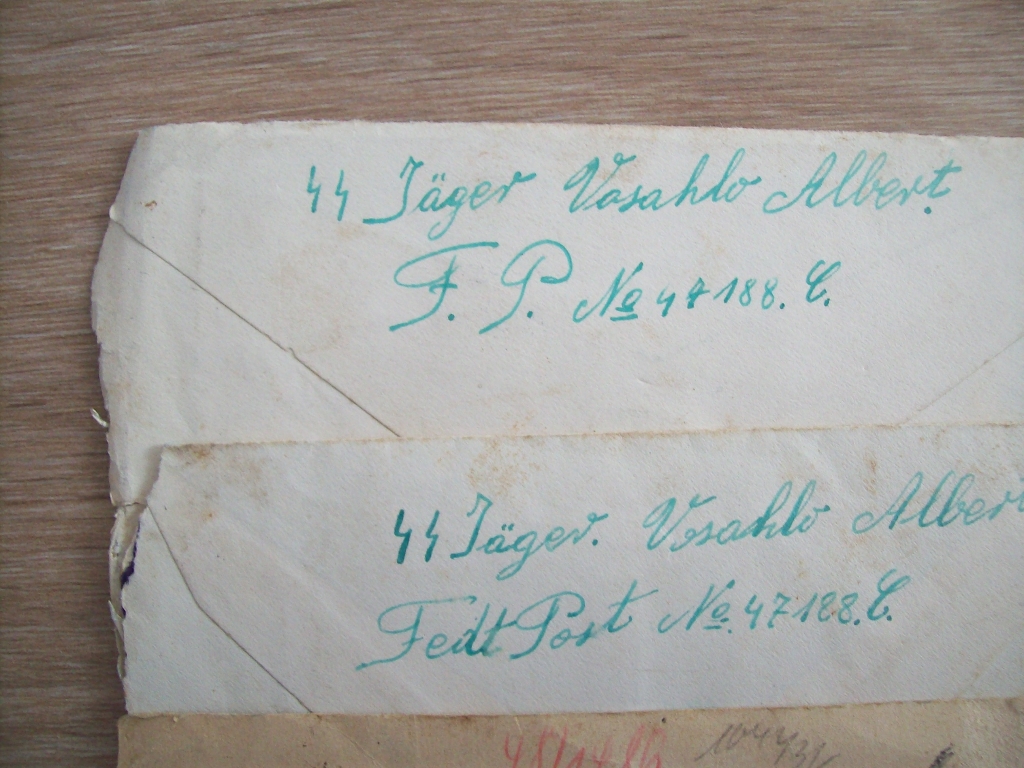 ᛋᛋ Jäger Vosahlo Albert.
F. P. No 47188. C.
ᛋᛋ Jäger. Vosahlo Albert
Fedt Post No. 47188. C.